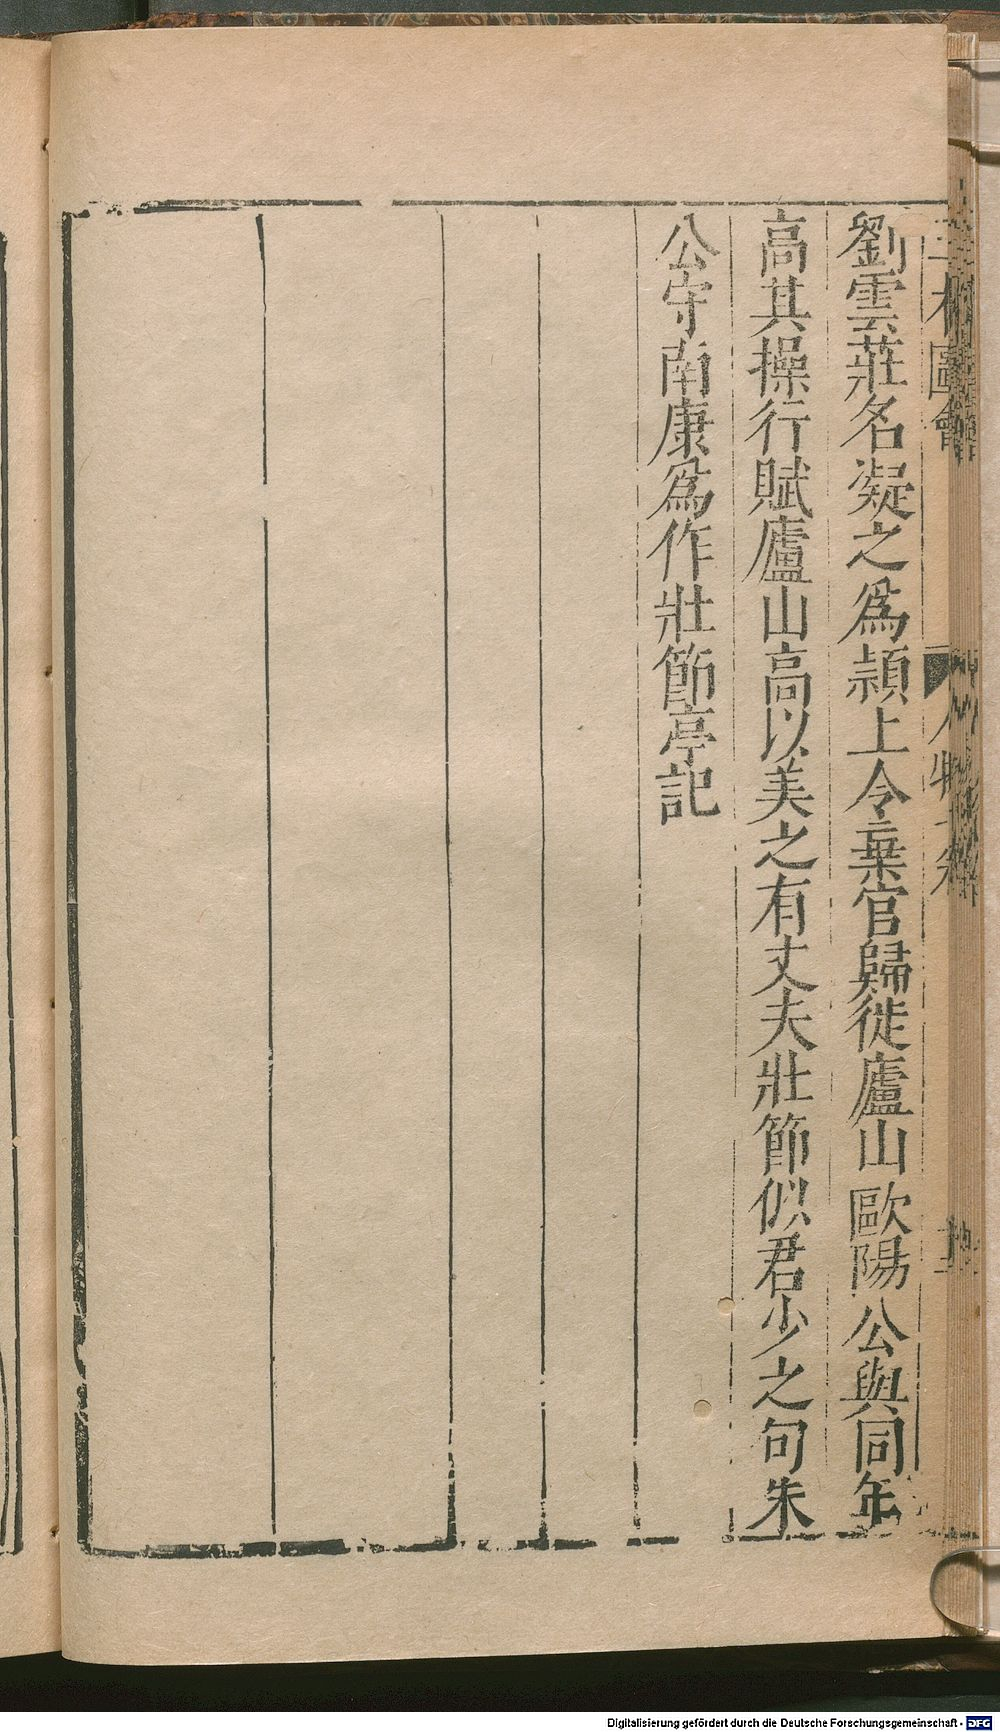 劉雲莊名凝之爲頴上令棄官歸徙廬山歐陽公與同年
高其操行賦廬山高以美之有丈夫壯節似君少之句朱
公守南康爲作壯節亭記
圖會
Digitalisierung gefördert durch die Deutsche Forschungsgemeinschaft - DFG